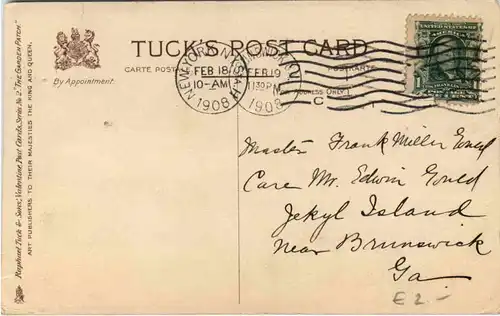 TUCK'S POST CARD
CARTE POSTALE
POSTKARTE
By Appointment.
FEB 18
10-AM
1908
FEB 19
1130 P M
1908
C
ADDRESS ONLY.
Raphael Tuck & Sons' Valentine Post Cards, Series No. 2, "The Garden Patch."
ART PUBLISHERS TO THEIR MAJESTIES THE KING AND QUEEN.
Master Frank Miller Gould
Care Mr. Edwin Gould
Jekyl Island
near Brunswick
Ga.
£ 2.-